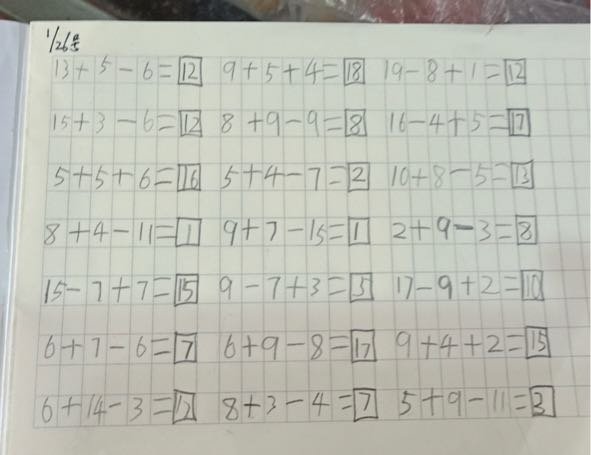 1/26号
13+5-6=12 9+5+4=18 19-8+1=12
15+3-6=12 8+9-9=8 16-4+5=17
5+5+6=16 5+4-7=2 10+8-5=13
8+4-11=1 9+7-15=1 2+9-3=8
15-7+7=15 9-7+3=5 17-9+2=10
6+7-6=7 6+9-8=17 9+4+2=15
6+14-3=12 8+3-4=7 5+9-11=3